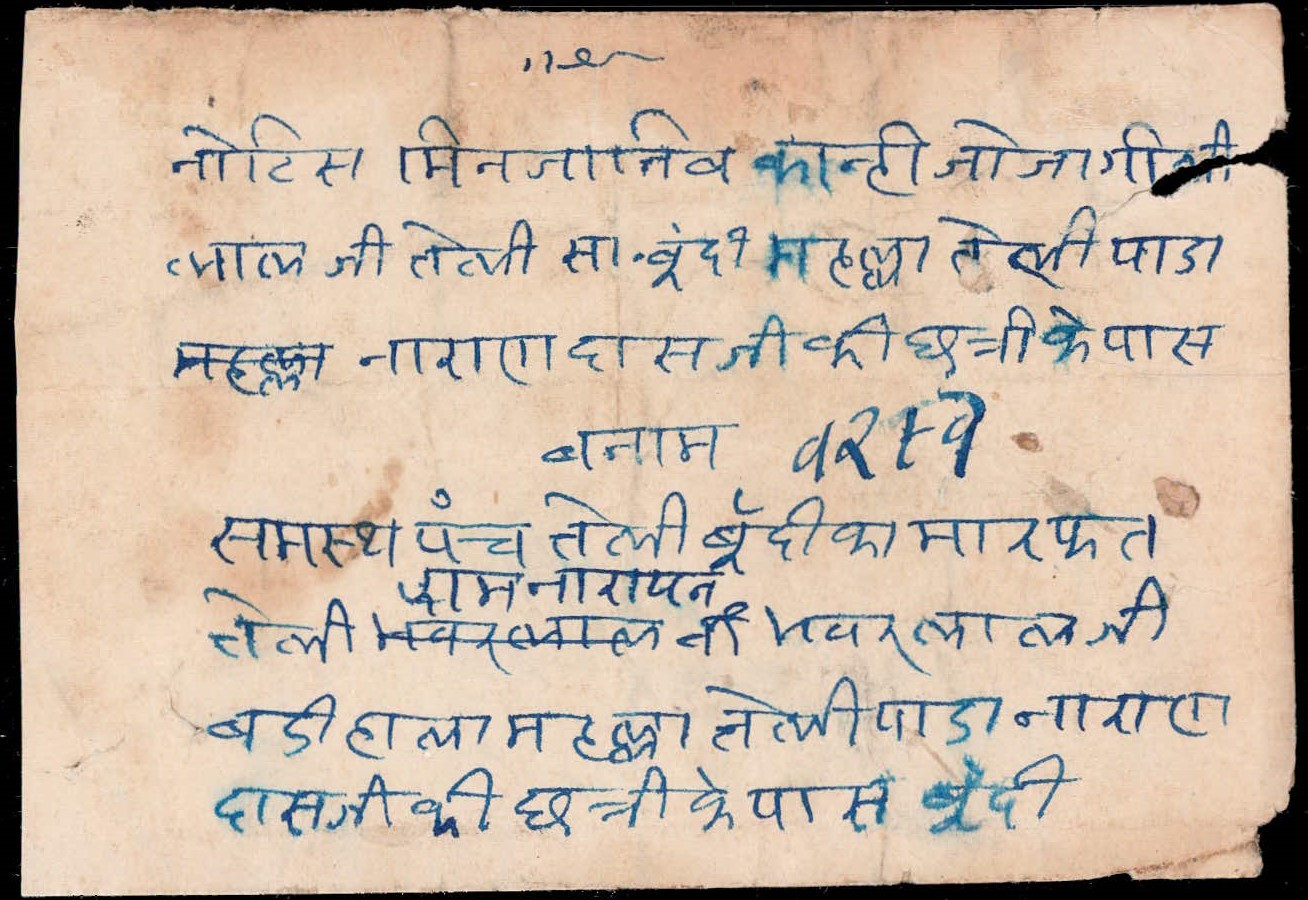 नोटिस मिनजानिब कान्ही जी जागी
लाल जी तेली सा. बूंदी महल्ला तेली पाडा
महल्ला नाराएा दास जी की छत्री के पास
बनाम
समस्थ पंच तेली बूँदी का मारफत
रामनारायन
तेली भवरलाल वा भवरलाल जी
बडी हाला महल्ला तेली पाडा नाराएा
दास जी की छत्री के पास बूंदी